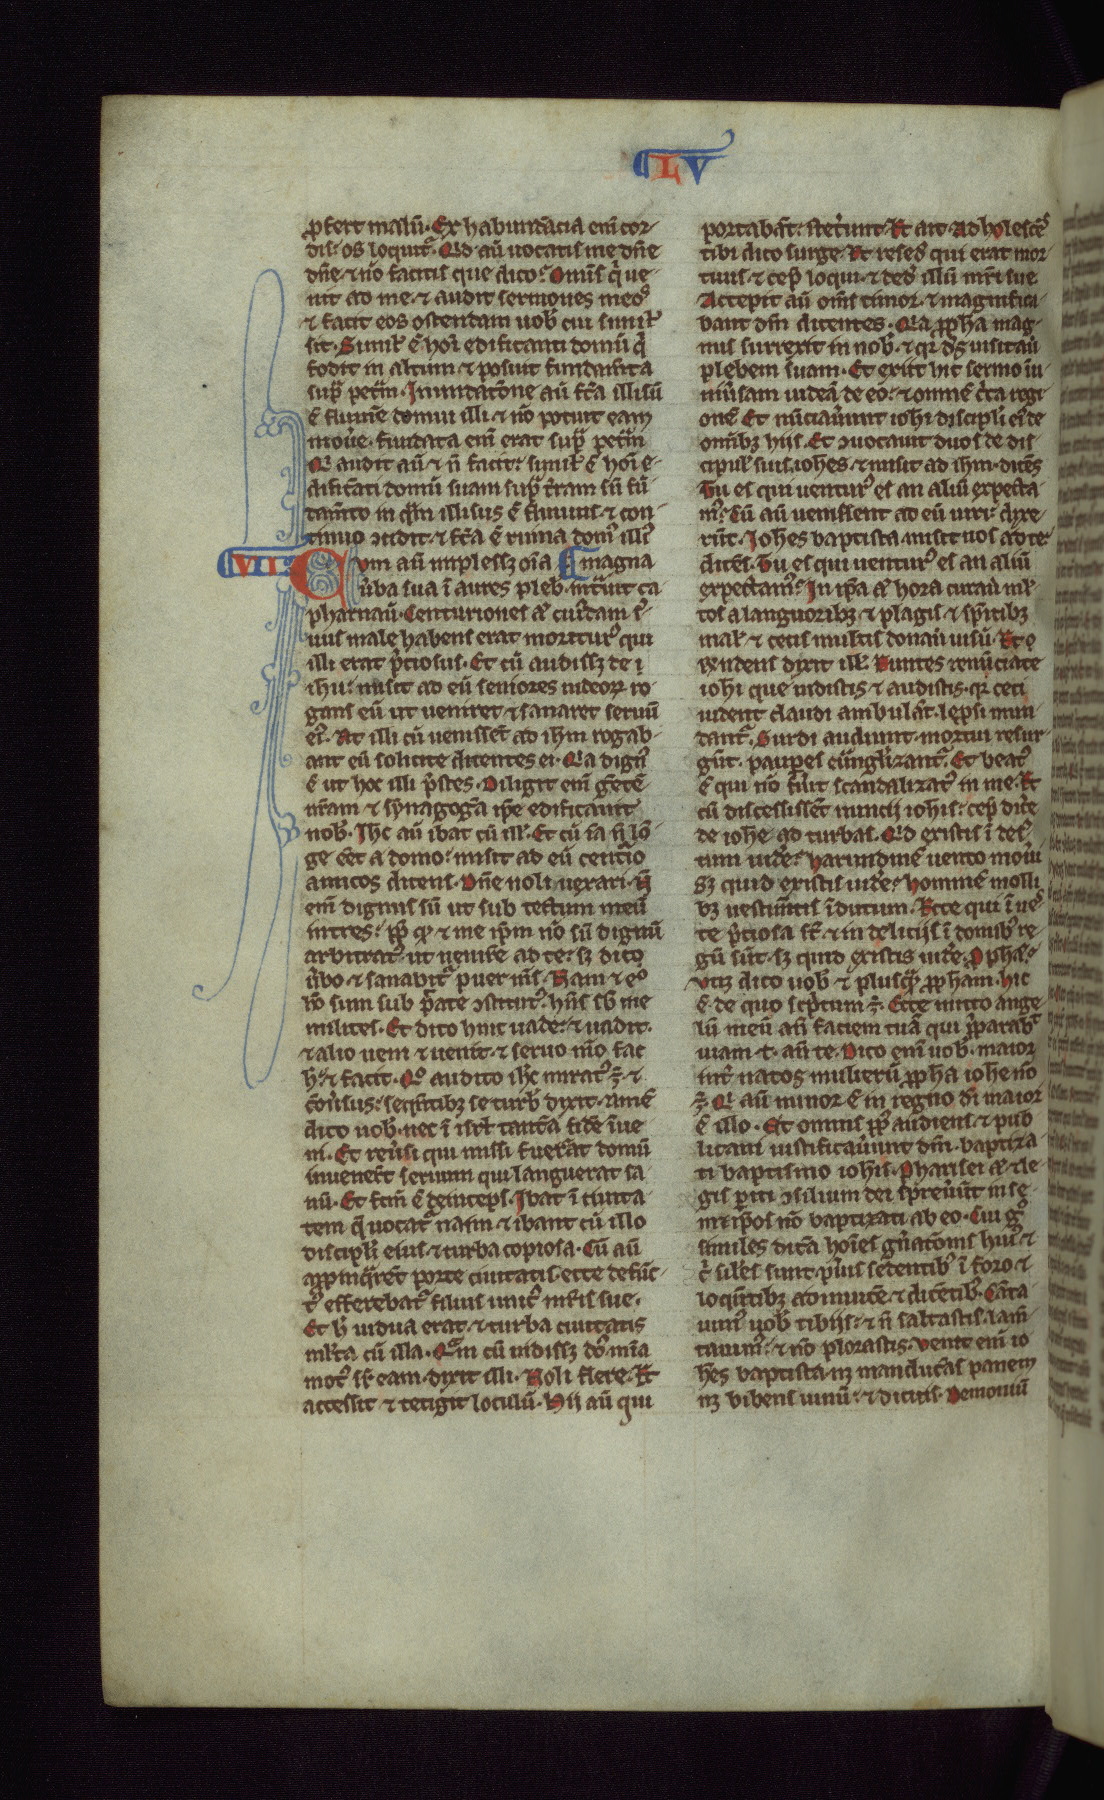 LV
ꝓfert malū. Ex habundācia eni᷎ cor-
dis os loquit᷑. Qd aū uocatis me dn̄e
dn̄e ⁊ nō facitis que dico. Omīs q͛ ue-
nit ad me ⁊ audit sermones meos
⁊ facit eos ostendam uob̄ cui simil᷎
sit. Simil᷎ ē hoī edificanti domū q͛
fodit in altum ⁊ posuit fundam̄ta
sup̄ petrā. Inundacōne aū fc̄a illisū
ē flumē domui illi ⁊ nō potuit eam
mou̓e. fundata eni᷎ erat sup̄ petrā
Qi audit aū ⁊ n̄ facit simil᷎ ē hoī e-
dificāti domū suam sup̄ t̓ram sn̄ fū-
dam̄to in qm̄ illisus ē fluuius ⁊ con-
tinuo ↄcidit ⁊ fc̄a ē ruina dom᷒ illi᷒
VII. Cum aū implessꝫ oīa
ū̓ba sua ī aures pleb̄ intͣuit ca
pharnaū. Centurionis aͨ cuiᵈdam s̓-
uus male habens erat moritur᷒ qui
illi erat p̓ciosus. Et cū audissꝫ de i
ihu᷎ misit ad eū seniores iudeoꝝ ro-
gans eū ut ueniret ⁊ sanaret seruū
ei᷒. At illi cū uenissēt ad ihm̄ rogab-
ant eū solicite dicentes ei. Qa dign᷒
ē ut hoc illi p̓stes. Diligit eni᷎ gētē
nr̄am ⁊ synagogā ip̄e edificauit
nob̄. Ihc aū ibat cū ill᷎. Et cū iā n̄ lō-
ge eēt a domo misit ad eū centͥio
amicos dicens. Dn̄e noli uexari. Nō
eni᷎ dignus sū ut sub tectum meū
intres. ꝓp̄ qd ⁊ me ip̄m nō sū dignū
arbitrat᷒ ut uenirē ad te. sꝫ dic
ū̓bo ⁊ sanabit᷑ puer m̄s. Nam ⁊ ego
hō sum sub p̄tate ↄstitut᷒ hn̄s sb̄ me
milites. Et dico huic uade ⁊ uadit.
⁊ alio ueni ⁊ uenit. ⁊ seruo mō fac
h᷎ ⁊ facit. Qo audito ihc mirat᷒ ē ⁊
cōu̓sus seqn̄tibꝫ se turb̄ dixit. Amē
dico uob̄ nec ī isrl̄ tantā fidē īue
ni. Et reu̓si qui missi fuerāt domū
inuener̄t seruum qui languerat sa
nū. Et fcm̄ ē deinceps. Ibat ī ciuita
tem q̄ uocat᷑ naim ⁊ ibant cū illo
discipl̓i eius ⁊ turba copiosa. Cū aū
appīq̄rēt porte ciuitatis ecce defūc-
t᷒ efferebat᷑ filius unic᷒ mr̄is sue.
Et h̄ uidua erat. ⁊ turba ciuitatis
ml̄ta cū illa. Qͣm cū uidissꝫ dn̄s mīa
mot᷒ sr̄ eam dixit illi. Noli flere. Et
accessit ⁊ tetigit loculū. Hii aū qui
magna
portabāt stet̓unt. Et ait. Adholescēs
tibi dico surge. Et resed̓ qui erat mor
tuus ⁊ cep̄ loqui. ⁊ ded̓ illū mr̄i sue
Accepit aū om̄s timor ⁊ magnifica-
bant dm̄ dicentes. Qa ꝓpha mag-
nus surrexit in nob̄ ⁊ qr ds̄ uisitau̓
plebem suam. Et exiit hic sermo īu
niu̓sam iudeā de eo. ⁊ omnē c̓ca regi
onē Et nūciau̓unt iohi discipl̓i ei᷒ de
omībꝫ hiis. Et ↄuocauit duos de dis-
cipul᷎ suis iohes ⁊ misit ad ihm̄ dicēs
Tu es qui uentur᷒ es an aliū expecta
m᷒. Cū aū uenissent ad eū uiri dixe-
rūt. Iohes baptista misit nos ad te
dicēs. Tu es qui uentur᷒ es an aliū
expectam᷒. In ip̄a aͨ hora curau̓ ml̄-
tos a languoribꝫ ⁊ plagis ⁊ sp̄itibꝫ
mal᷎ ⁊ cecis multis donau̓ uisū. Et r
n̄dens dixit ill᷎. Euntes renūciate
iohi que uidistis ⁊ audistis. qr ceci
uident claudi ambulāt. lepsi mun
dant᷑. Surdi audiunt. mortui resur-
gūt. paupes euāglizant᷑. Et beat᷒
ē qui nō fu̓it scandalizat᷒ in me. Et
cū discessissēt nuncij iohis cep̄ dic̓e
de iohe ad turbas. Qd existis ī des̓-
tum uid̓e. harundinē uento mou̓i
sꝫ quid existis uid̓e. hominē molli
bꝫ uestim̄tis īdutum. Ecce qui ī ues
te p̓ciosa st̄ ⁊ in deliciis ī domib᷒ re-
gū sūt. sꝫ quid existis uid̓e. ꝓphā.
vtiqꝫ dico uob̄ ⁊ plusqͣ ꝓpham. hic
ē de quo scptum ē. Ecce mitto ange
lū meū an̄ faciem tuā qui p̓parab̓
uiam. t. an̄ te. Dico eni᷎ uob̄. maior
int̓ natos mulierū ꝓpha iohe nō
ē. Qi aū minor ē in regno di᷎ maior
ē illo. Et omnis pp̄ls audiens ⁊ pub
licani iustificau̓unt dm̄. baptiza
ti baptismo iohis. Pharisei aͨ ⁊ le-
gis ꝑiti ↄsilium dei sp̓reu̓ūt in se
met ip̄os nō baptizati ab eo. Cui g̓
similes dicā hoīes gn̄atonis hui᷒ ⁊
c̓ siles sunt. pu̓is sedentib᷒ ī foro ⁊
loqn̄tibꝫ adinuicē ⁊ dicētib᷒. Cāta
uim᷒ uob̄ tibijs. ⁊ n̄ saltastis. lamē-
tauim᷒ ⁊ nō plorastis. Venit eni᷎ io
hēs baptista nꝫ manducās panem
nꝫ bibens uinū. ⁊ dicitis. Demoniū